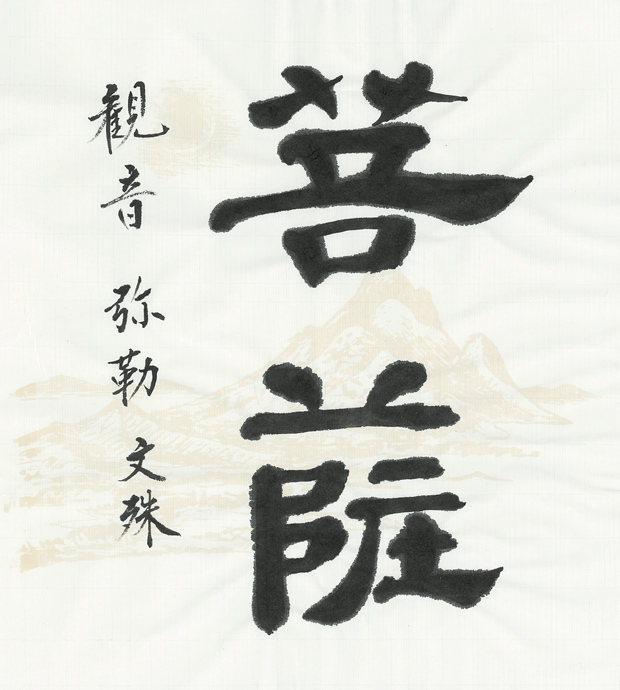 菩薩
観音 弥勒 文殊